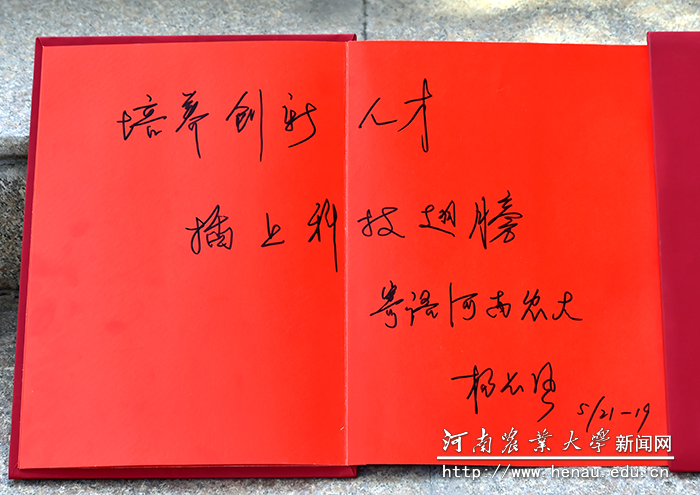 培养创新人才
插上科技翅膀
寄语河南农大
杨志强
5/21-19
河南农业大学新闻网
http://www.henau.edu.cn